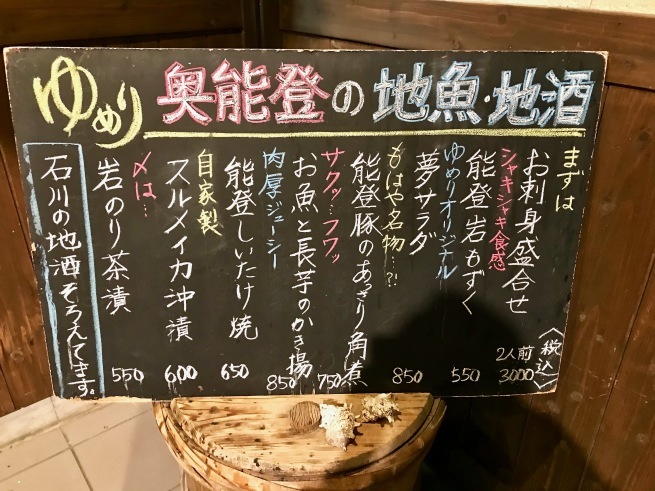 ゆめり 奥能登の地魚・地酒
<税込>
まずは
お刺身盛合せ 2人前 3000
シャキシャキ食感
能登岩もずく 550
ゆめりオリジナル
夢サラダ 850
もはや名物…?!
能登豚のあっさり角煮 750
サクッ…フワッ
お魚と長芋のかき揚 850
肉厚ジューシー
能登しいたけ焼 650
自家製
スルメイカ沖漬 600
〆は…
岩のり茶漬 550
石川の地酒そろえてます。